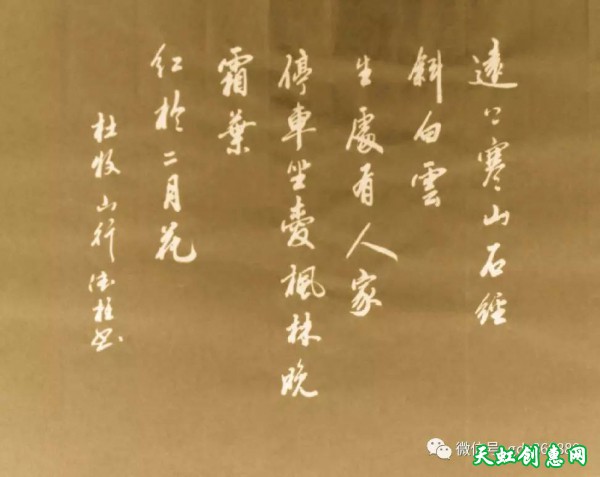 遠上寒山石經
斜白雲
生處有人家
停車坐愛楓林晚
霜葉
红於二月花
杜牧山行德桂书
微信号
天虹创惠网